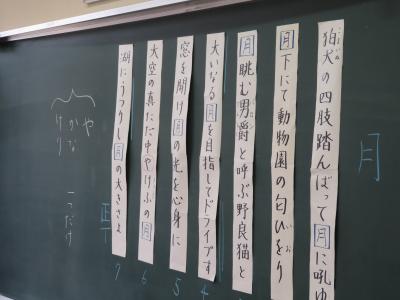 月
狛犬の四肢踏んばって月に吼ゆ
こまいぬ
月下にて動物園の匂ひをり
にお
月眺む男爵と呼ぶ野良猫と
大いなる月を目指してドライブす
4
窓を開け月の光を心身に
5
大空の真ただ中やけふの月
6
湖にうつりし月の大きさよ
7
や
かな
けり
一つだけ